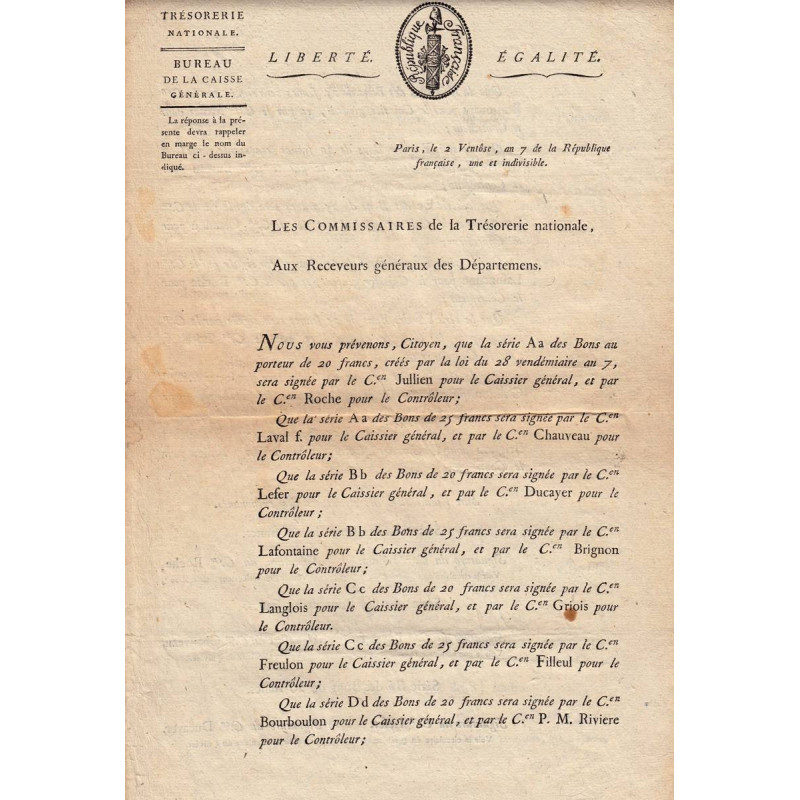 TRÉSORERIE
NATIONALE.
BUREAU
DE LA CAISSE
GÉNÉRALE.
La réponse à la pré-
sente devra rappeler
en marge le nom du
Bureau ci-dessus in-
diqué.
LIBERTÉ.
République Française
ÉGALITÉ.
Paris, le 2 Ventôse, an 7 de la République
française, une et indivisible.
LES COMMISSAIRES de la Trésorerie nationale,
Aux Receveurs généraux des Départemens.
NOUS vous prévenons, Citoyen, que la série Aa des Bons au
porteur de 20 francs, créés par la loi du 28 vendémiaire an 7,
sera signée par le C.en Jullien pour le Caissier général, et par
le C.en Roche pour le Contrôleur;
Que la série Aa des Bons de 25 francs sera signée par le C.en
Laval f. pour le Caissier général, et par le C.en Chauveau pour
le Contrôleur;
Que la série Bb des Bons de 20 francs sera signée par le C.en
Lefer pour le Caissier général, et par le C.en Ducayer pour le
Contrôleur;
Que la série Bb des Bons de 25 francs sera signée par le C.en
Lafontaine pour le Caissier général, et par le C.en Brignon
pour le Contrôleur;
Que la série Cc des Bons de 20 francs sera signée par le C.en
Langlois pour le Caissier général, et par le C.en Griois pour
le Contrôleur.
Que la série Cc des Bons de 25 francs sera signée par le C.en
Freulon pour le Caissier général, et par le C.en Filleul pour le
Contrôleur;
Que la série Dd des Bons de 20 francs sera signée par le C.en
Bourboulon pour le Caissier général, et par le C.en P. M. Riviere
pour le Contrôleur;